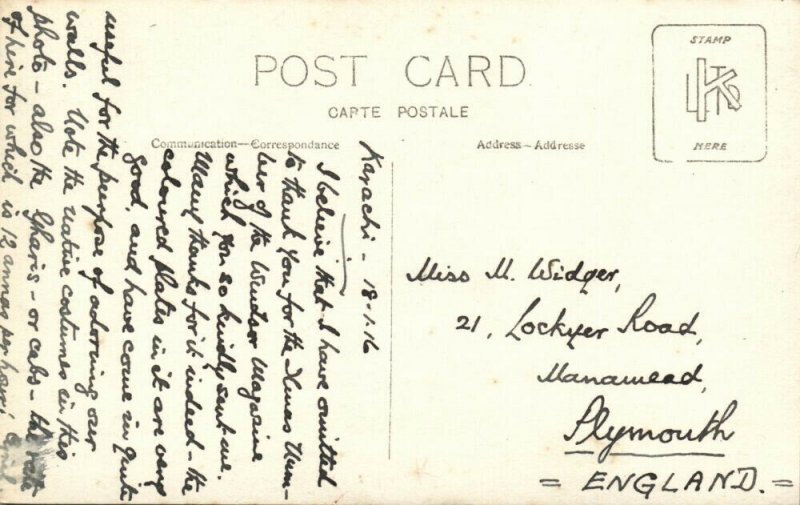 POST CARD
CARTE POSTALE
STAMP
HERE
Communication—Correspondance
Address - Adresse
Karachi - 18.1.16
I believe that I have omitted
to thank you for the Xmas Num-
ber of the Windsor Magazine
which you so kindly sent me.
Many thanks for it indeed - the
coloured plates in it are very
good, and have come in quite
useful for the purpose of adorning our
walls. Note the native costumes in this
photo - also the Gharis - or cabs - the rate
of hire for which is 12 annas per hour!
Miss M. Widger,
21, Lockyer Road,
Manamead,
Plymouth
= ENGLAND. =